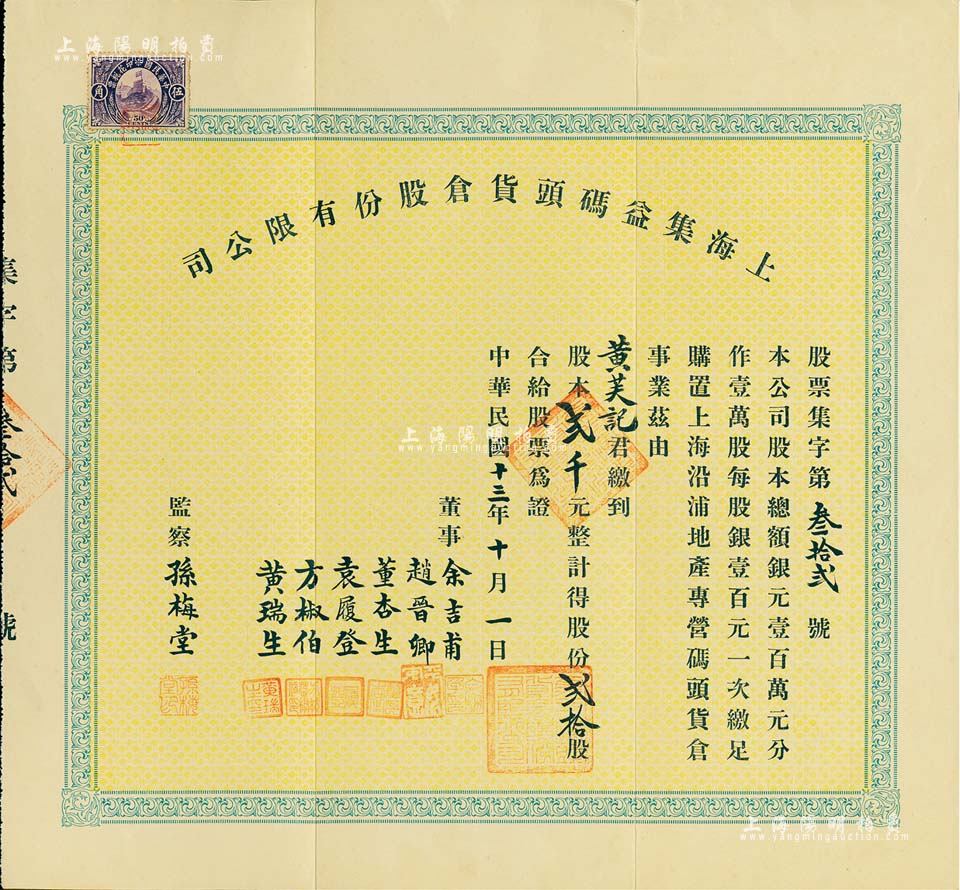 上海陽明拍賣
www.yangmingauction.com
中華民國印花稅票
伍 角
50
CENTS
上海集益碼頭貨倉股份有限公司
股票集字第叁拾弍號
本公司股本總額銀元壹百萬元分
作壹萬股每股銀壹百元一次繳足
購置上海沿浦地產專營碼頭貨倉
事業茲由
黃芙記君繳到
股本弍千元整計得股份弍拾股
合給股票為證
中華民國十三年十月一日
董事 余吉甫
趙晉卿
董杏生
袁履登
方椒伯
黃瑞生
監察 孫梅堂
集字第叁拾弍號
上海陽明拍賣
www.yangmingauction.com
上海陽明拍賣
www.yangmingauction.com